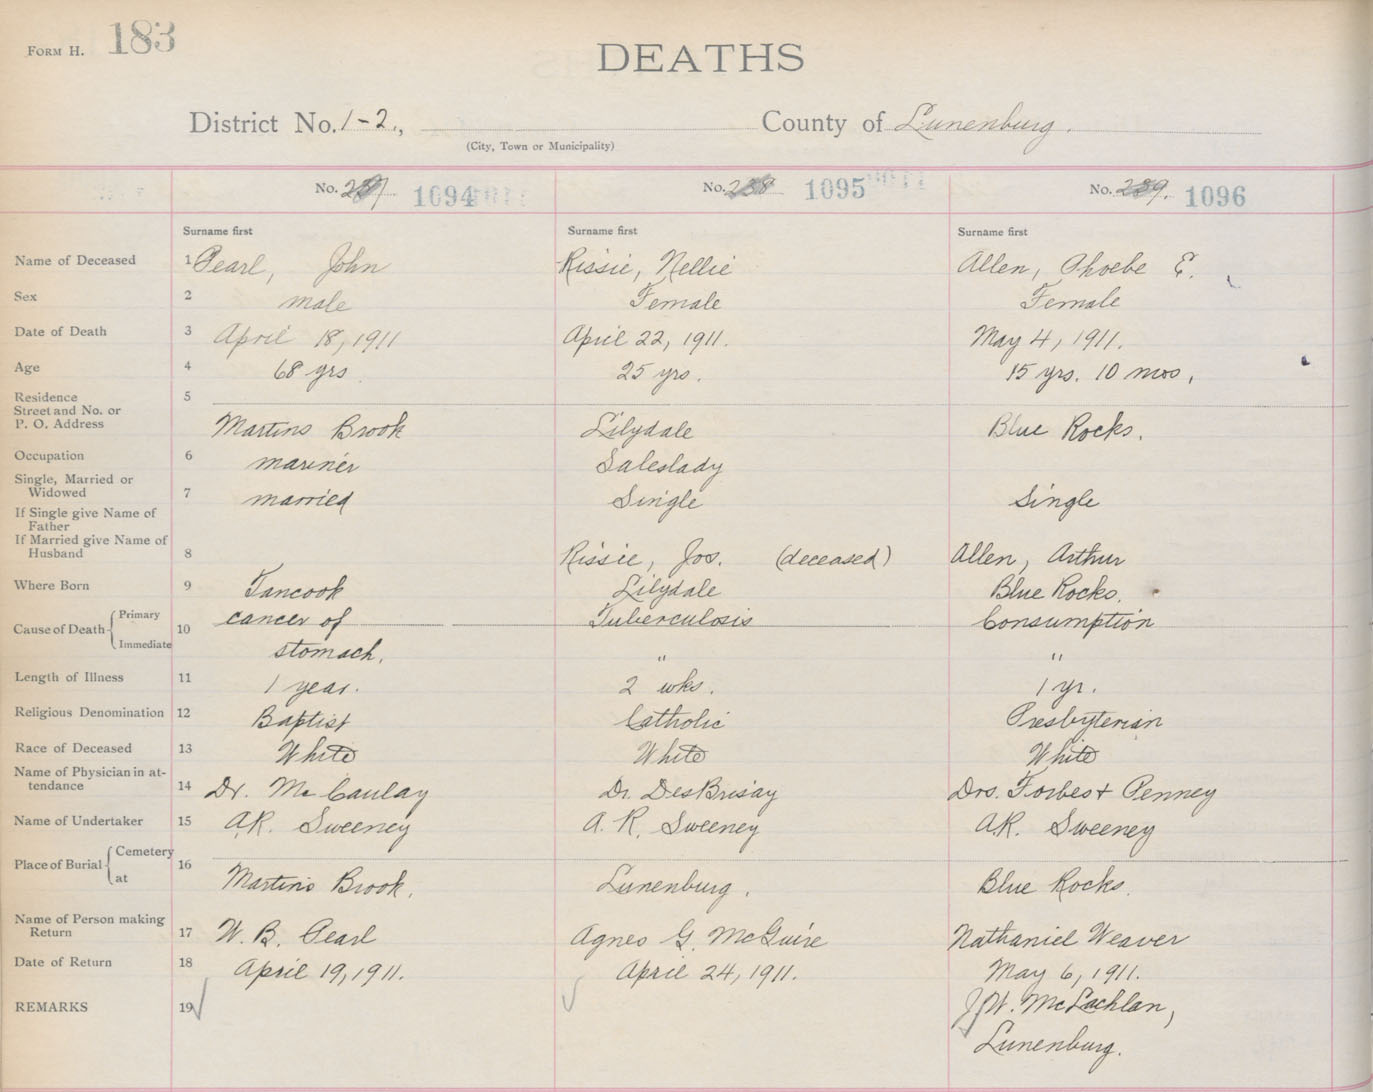 FORM H. 183
DEATHS
District No. 1-2., County of Lunenburg.
(City, Town or Municipality)
No. 237 1094 No. 238 1095 No. 239. 1096
Surname first Surname first Surname first
Name of Deceased 1 Pearl, John Rissie, Nellie Allen, Phoebe E.
Sex 2 male Female Female
Date of Death 3 April 18, 1911 April 22, 1911. May 4, 1911.
Age 4 68 yrs. 25 yrs. 15 yrs. 10 mos.
Residence 5
Street and No. or
P. O. Address Martins Brook Lilydale Blue Rocks.
Occupation 6 mariner Saleslady
Single, Married or
Widowed 7 married Single Single
If Single give Name of
Father
If Married give Name of
Husband 8 Rissie, Jos. (deceased) Allen, Arthur
Where Born 9 Tancook Lilydale Blue Rocks.
Cause of Death Primary 10 cancer of Tuberculosis Consumption
Immediate stomach. " "
Length of Illness 11 1 year. 2 wks. 1 yr.
Religious Denomination 12 Baptist Catholic Presbyterian
Race of Deceased 13 White White White
Name of Physician in at-
tendance 14 Dr. McCaulay Dr. DesBrisay Drs. Forbes + Penney
Name of Undertaker 15 A.R. Sweeney A. R. Sweeney A.R. Sweeney
Place of Burial Cemetery 16
at Martins Brook. Lunenburg. Blue Rocks.
Name of Person making
Return 17 W. B. Pearl Agnes G. McGuire Nathaniel Weaver
Date of Return 18 April 19, 1911. April 24, 1911. May 6, 1911.
REMARKS 19 J.W. McLachlan,
Lunenburg.